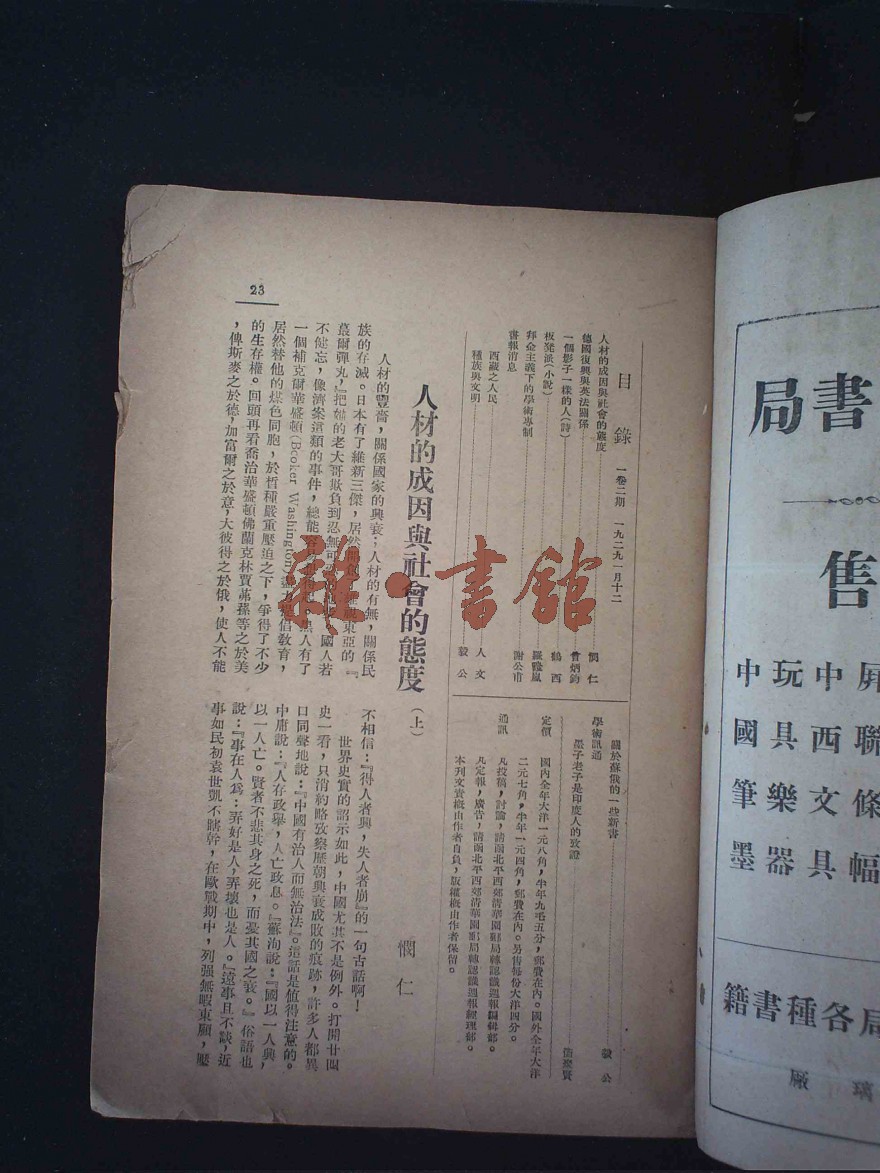 目錄
一卷二期 一九二九一月十二
人材的成因與社會的態度 憫仁
德國復興與英法關係 曾炳鈞
一個影子一樣的人(詩) 鶴西
板凳派(小說) 羅皚嵐
拜金主義下的學術專制 謝公甫
書報消息
西藏之人民 人文
種族與文明 毅公
關於蘇俄的一些新書 毅公
學術訊通
墨子老子是印度人的攷證 衛聚賢
定價 國內全年大洋一元八角,半年九毛五分,郵費在內。國外全年大洋
二元七角,半年一元四角,郵費在內。另售每份大洋四分。
通訊 凡投稿,討論,請函北平西郊清華園郵局轉認識週報編輯部。
凡定報,廣告,請函北平西郊清華園郵局轉認識週報經理部。
本刊文責概由作者自負,版權概由作者保留。
人材的成因與社會的態度(上)
憫仁
人材的豐嗇,關係國家的興衰;人材的有無,關係民
族的存滅。日本有了維新三傑,居然東亞的『
蕞爾彈丸』把她的老大哥欺負到忍無可國人若
不健忘,像濟案這類的事件,總能黑人有了
一個補克爾華盛頓(Booker Washington)倡教育,
居然替他的煤色同胞,於皙種嚴重壓迫之下,爭得了不少
的生存權。回頭再看喬治華盛頓佛蘭克林賈茀蓀等之於美
,俾斯麥之於德,加富爾之於意,大彼得之於俄,使人不能
不相信:『得人者興,失人者崩』的一句古話啊!
世界史實的詔示如此,中國尤其不是例外。打開廿四
史一看,只消約略攷察歷朝興衰成敗的痕跡,許多人都異
口同聲地說:『中國有治人而無治法』。這話是值得注意的。
中庸說:『人存政舉,人亡政息。』蘇洵說:『國以一人興,
以一人亡。賢者不悲其身之死,而憂其國之衰。』俗語也
說:『事在人為:弄好是人,弄壞也是人。』遠事且不談,近
事如民初袁世凱不瞎幹,在歐戰期中,列強無暇東顧,壓
23
雜·書館
書局
售
屏聯條幅
中西文具
玩具樂器
中國筆墨
局各種書籍
璃廠